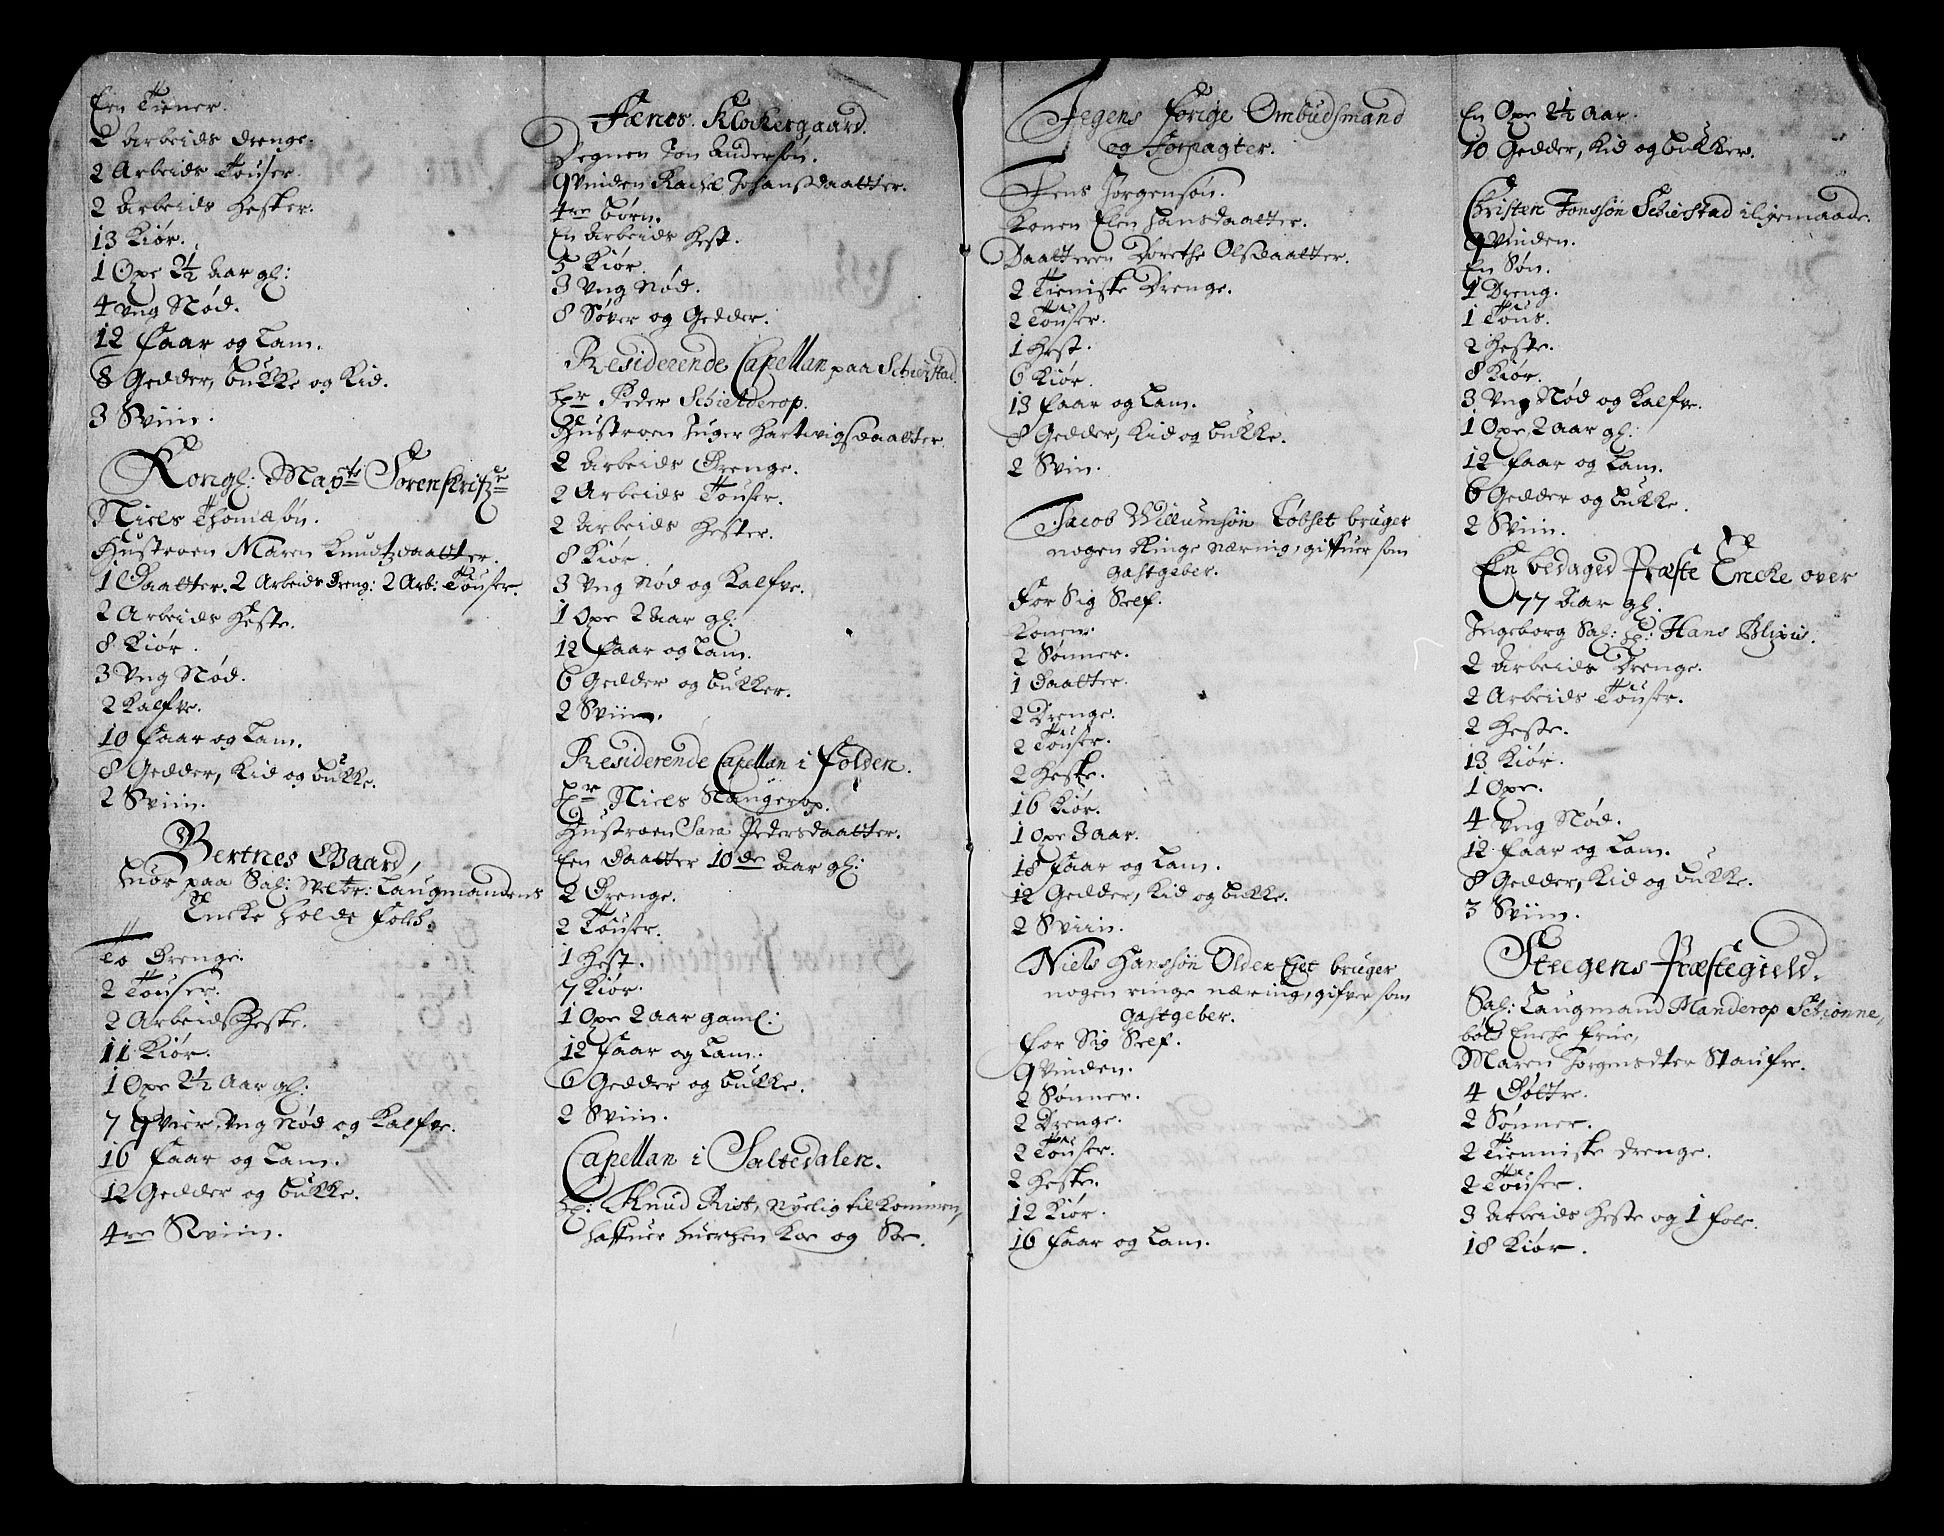 Een Tiener.
2 Arbeids drenge.
2 Arbeids Töuser.
2 Arbeids Hester.
13 Kiör.
1 Oxe 2½ Aar gl:
4 Ung Nöd.
12 Faar og Lam.
8 Gedder, bukke og Kid.
3 Sviin.
Kongl: Maytz Sorenskrifr
Niels Thomæsön.
Hustroen Maren Knudtzdaatter.
1 Daatter. 2 Arbeids Dreng: 2 Arb: Töuser.
2 Arbeids Heste.
8 Kiör.
3 Ung Nöd.
2 Kalfve.
10 Faar og Lam.
8 Gedder, Kid og bukke.
2 Sviin.
Bertnes Gaard,
paa Sal: Laugmandens
Encke holde folch.
To Drenge.
2 Töuser.
2 Arbeids Heste.
11 Kiör.
1 Oxe 2½ Aar gl:
7 Qvier, Ung Nöd og Kalfve.
16 Faar og Lam.
12 Gedder og bukke.
4re Sviin.
Fænes Klockergaard.
Degnen Jon Andersön.
Qvinden Rachel Johansdaatter.
4re börn.
En Arbeids Hest.
5 Kiör.
3 Ung Nöd.
8 Söver og Gedder.
Residerende Capellan paa Schierstad.
Hr Peder Schielderop.
Hustroen Inger Hartvigsdaatter
2 Arbeids Drenge.
2 Arbeids Töuser.
2 Arbeids Hester.
8 Kiör.
3 Ung Nöd og Kalfve.
1 Oxe 2 Aar gl:
12 Faar og Lam.
6 Gedder og bukker.
2 Sviin.
Residerende Capellan i Folden.
Hr Niels Slangerop.
Hustroen Sara Pedersdaatter.
Een Daatter 10de Aar gl:
2 Drenge.
2 Töuser.
1 Hest.
7 Kiör.
1 Oxe 2 Aar gaml:
12 Faar og Lam.
6 Gedder og bukke.
2 Sviin.
Capellan i Saltedalen.
Hr: Knud Rist, nyelig tilkommen,
haffuer huerchen Koe og Soe.
Jegens forige Ombudsmand
og Forpagter.
Jens Jörgensön.
Konen Elen Hansdaatter.
Daatteren Dorethe Olsdaatter.
2 Tieniste Drenge.
2 Töuser.
1 Hest.
6 Kiör.
13 Faar og Lam.
8 Gedder, Kid og bukke.
2 Svin.
Jacob Willumsön Löbset bruger
nogen Ringe næring, giffuer som
gastgeber.
For Sig Self.
Konen.
2 Sönner.
1 Daatter.
2 Drenge.
2 Töuser.
2 Heste.
16 Kiör.
1 Oxe 3 Aar.
18 Faar og Lam.
12 Gedder, Kid og bukke.
2 Sviin.
Niels Hanssön Olden Eyet bruger
nogen ringe næring, gifver som
gastgeber.
For Sig Self.
Qvinden.
2 Sönner.
2 Drenge.
2 Töuser.
2 Heste.
12 Kiör.
16 Faar og Lam.
En Oxe 2½ Aar.
10 Gedder, Kid og bukker.
Christen Jonssön Schierstad iligemaade.
Qvinden.
En Sön.
1 Dreng.
1 Töus.
2 Heste.
8 Kiör.
3 Ung Nöd og Kalfve.
1 Oxe, 2 Aar gl:
12 Faar og Lam.
6 Gedder og bukke.
2 Sviin.
En bedaged Præste Encke over
77 Aar gl.
Ingeborg Sal: Hr: Hans Blixis.
2 Arbeids Drenge.
2 Arbeids Töuser.
2 Heste.
13 Kiör.
1 Oxe.
4 Ung Nöd.
12 Faar og Lam.
8 Gedder, Kid og bukke.
3 Sviin.
Steegens Præstegield.
Sal: Laugmand Manderop Schiönne,
böls Encke Frue,
Maren Jörgensdter Staufre.
4 Döttre.
2 Sönner.
2 Tienniste Drenge.
2 Töuser.
3 Arbeids Heste og 1 fole.
18 Kiör.